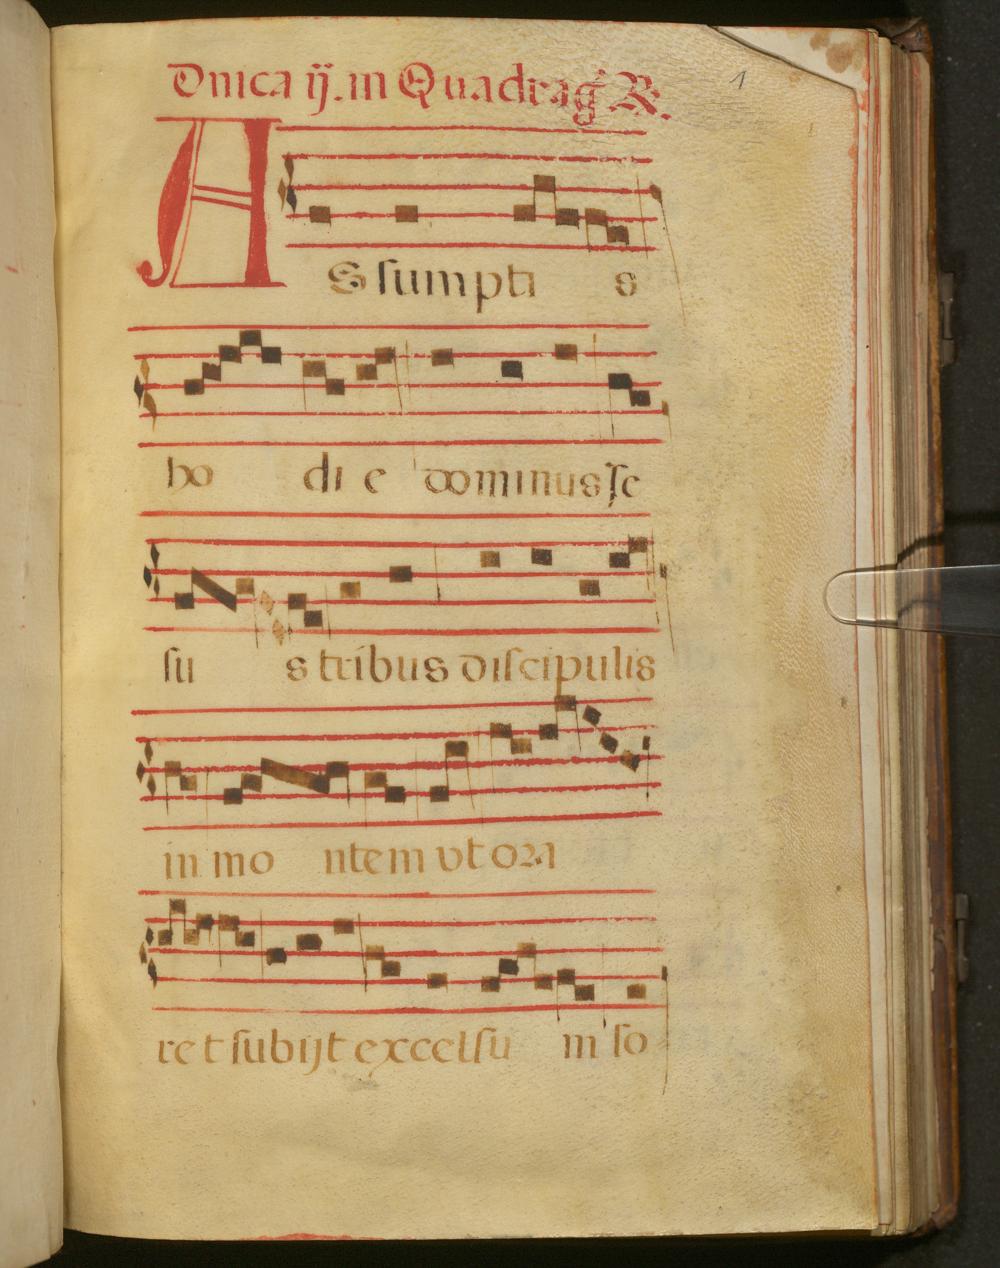 Dnica ij. in Quadrag R.
1
ASsumpti s
ho di e dominus Je
su s tribus discipulis
in mo ntem vt ora
re t subijt excelsu in so